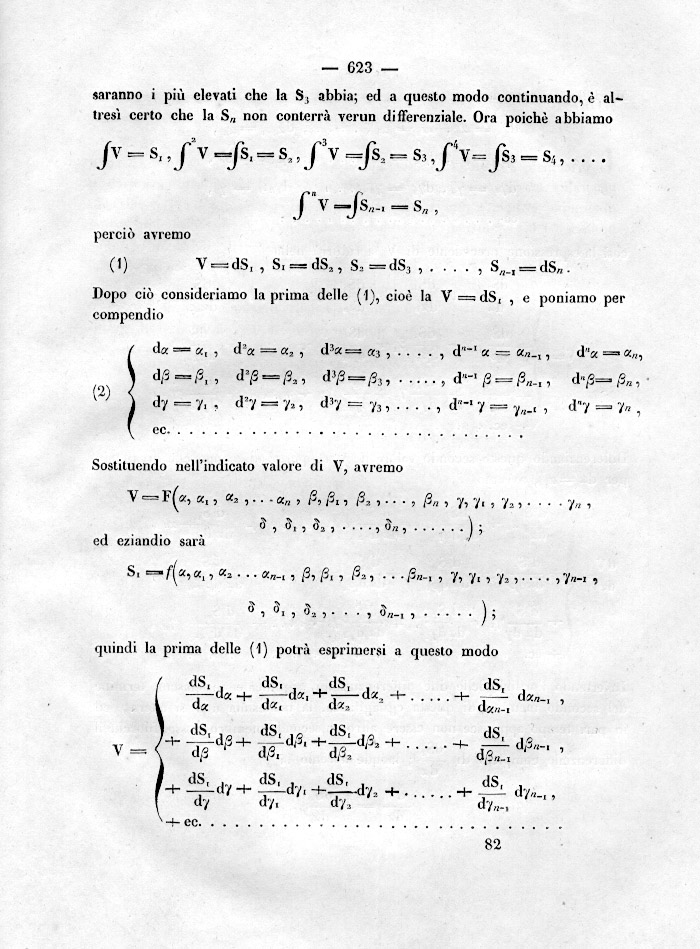 — 623 —
saranno i più elevati che la S₃ abbia; ed a questo modo continuando, è al-
tresì certo che la Sₙ non conterrà verun differenziale. Ora poichè abbiamo
∫V = S₁, ∫²V = ∫S₁ = S₂, ∫³V = ∫S₂ = S₃, ∫⁴V = ∫S₃ = S₄, . . . .
∫ⁿV = ∫Sₙ₋₁ = Sₙ ,
perciò avremo
(1) V = dS₁ , S₁ = dS₂ , S₂ = dS₃ , . . . . . , Sₙ₋₁ = dSₙ .
Dopo ciò consideriamo la prima delle (1), cioè la V = dS₁ , e poniamo per
compendio
dα = α₁ , d²α = α₂ , d³α = α₃ , . . . . . , dⁿ⁻¹ α = αₙ₋₁ , dⁿα = αₙ,
dβ = β₁ , d²β = β₂ , d³β = β₃, . . . . . , dⁿ⁻¹ β = βₙ₋₁ , dⁿβ = βₙ ,
(2) {
dγ = γ₁ , d²γ = γ₂ , d³γ = γ₃ , . . . . , dⁿ⁻¹ γ = γₙ₋₁ , dⁿγ = γₙ ,
ec. . . . . . . . . . . . . . . . . . . . . . . . . . . .
Sostituendo nell'indicato valore di V, avremo
V = F(α, α₁ , α₂ , . . . αₙ , β, β₁ , β₂ , . . . , βₙ , γ, γ₁ , γ₂ , . . . . γₙ ,
δ , δ₁ , δ₂ , . . . . , δₙ, . . . . . . ) ;
ed eziandio sarà
S₁ = f(α, α₁ , α₂ . . . αₙ₋₁ , β, β₁ , β₂, . . . βₙ₋₁ , γ, γ₁ , γ₂ , . . . . , γₙ₋₁ ,
δ , δ₁ , δ₂ , . . . , δₙ₋₁ , . . . . . ) ;
quindi la prima delle (1) potrà esprimersi a questo modo
dS₁/dα dα + dS₁/dα₁ dα₁ + dS₁/dα₂ dα₂ + . . . . . + dS₁/dαₙ₋₁ dαₙ₋₁ ,
V = { + dS₁/dβ dβ + dS₁/dβ₁ dβ₁ + dS₁/dβ₂ dβ₂ + . . . . . + dS₁/dβₙ₋₁ dβₙ₋₁ ,
+ dS₁/dγ dγ + dS₁/dγ₁ dγ₁ + dS₁/dγ₂ dγ₂ + . . . . . . + dS₁/dγₙ₋₁ dγₙ₋₁ ,
+ ec. . . . . . . . . . . . . . . . . . . . . . . . . . . . . .
82